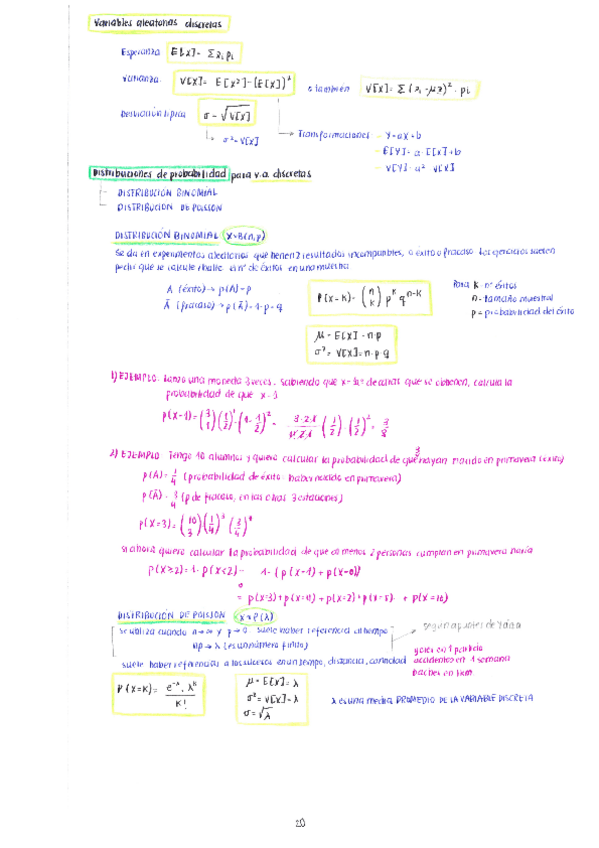 Variables aleatorias discretas
Esperanza E[X] = Σxi pi
Varianza V[X] = E[X²] - (E[X])² o también V[X] = Σ(xi - μx)² · pi
Desviación típica σ = √V[X]
σ² = V[X]
Transformaciones: Y = aX + b
E[Y] = a · E[X] + b
V[Y] = a² V[X]
Distribuciones de probabilidad para v.a. discretas
DISTRIBUCIÓN BINOMIAL
DISTRIBUCIÓN DE POISSON
DISTRIBUCIÓN BINOMIAL X = B(n,p)
Se da en experimentos aleatorios que tienen 2 resultados incompatibles, o éxito o fracaso. Los ejercicios suelen
pedir que se calcule el nº de éxitos en una muestra
A (éxito) → p(A) = p
Ā (fracaso) → p(Ā) = 1 - p = q
P(X=K) = (n K) p^K q^(n-K)
Para K = nº éxitos
n = tamaño muestral
p = probabilidad del éxito
μ = E[X] = n·p
σ² = V[X] = n·p·q
1) EJEMPLO: Lanzo una moneda 3 veces. Sabiendo que x = de caras que se obtienen, calcula la
probabilidad de que x =
p(X=1) = (3 1) (1/2)¹ · (1 - 1/2)² = (1/2) · (1/2)² = 3/8
2) EJEMPLO: Tengo 10 alumnos y quiero calcular la probabilidad de que 3 hayan nacido en primavera (éxito)
p(A) = 1/4 (probabilidad de éxito: haber nacido en primavera)
p(Ā) = 3/4 (p de fracaso, en las otras 3 estaciones)
p(X=3) = (10 3) (1/4)³ (3/4)
si ahora quiero calcular la probabilidad de que al menos 2 personas cumplan en primavera haría
p(X≥2) = 1 - p(X<2) = 1 - (p(X=1) + p(X=0))
o
= p(X=3) + + p(X=2) + + p(X=10)
DISTRIBUCIÓN DE POISSON X = P(λ)
se utiliza cuando n → ∞ y p → 0 suele haber referencia al tiempo
np → λ (es un número finito)
según apuntes de
suele haber referencias a los sucesos en un tiempo, distancia, cantidad
goles en 1 partido
accidentes en 1 semana
baches en 1 km
P(X=K) = e^-λ · λ^K / K!
μ = E[X] = λ
σ² = V[X] = λ
σ = √λ
λ es una media PROMEDIO DE LA VARIABLE DISCRETA
20